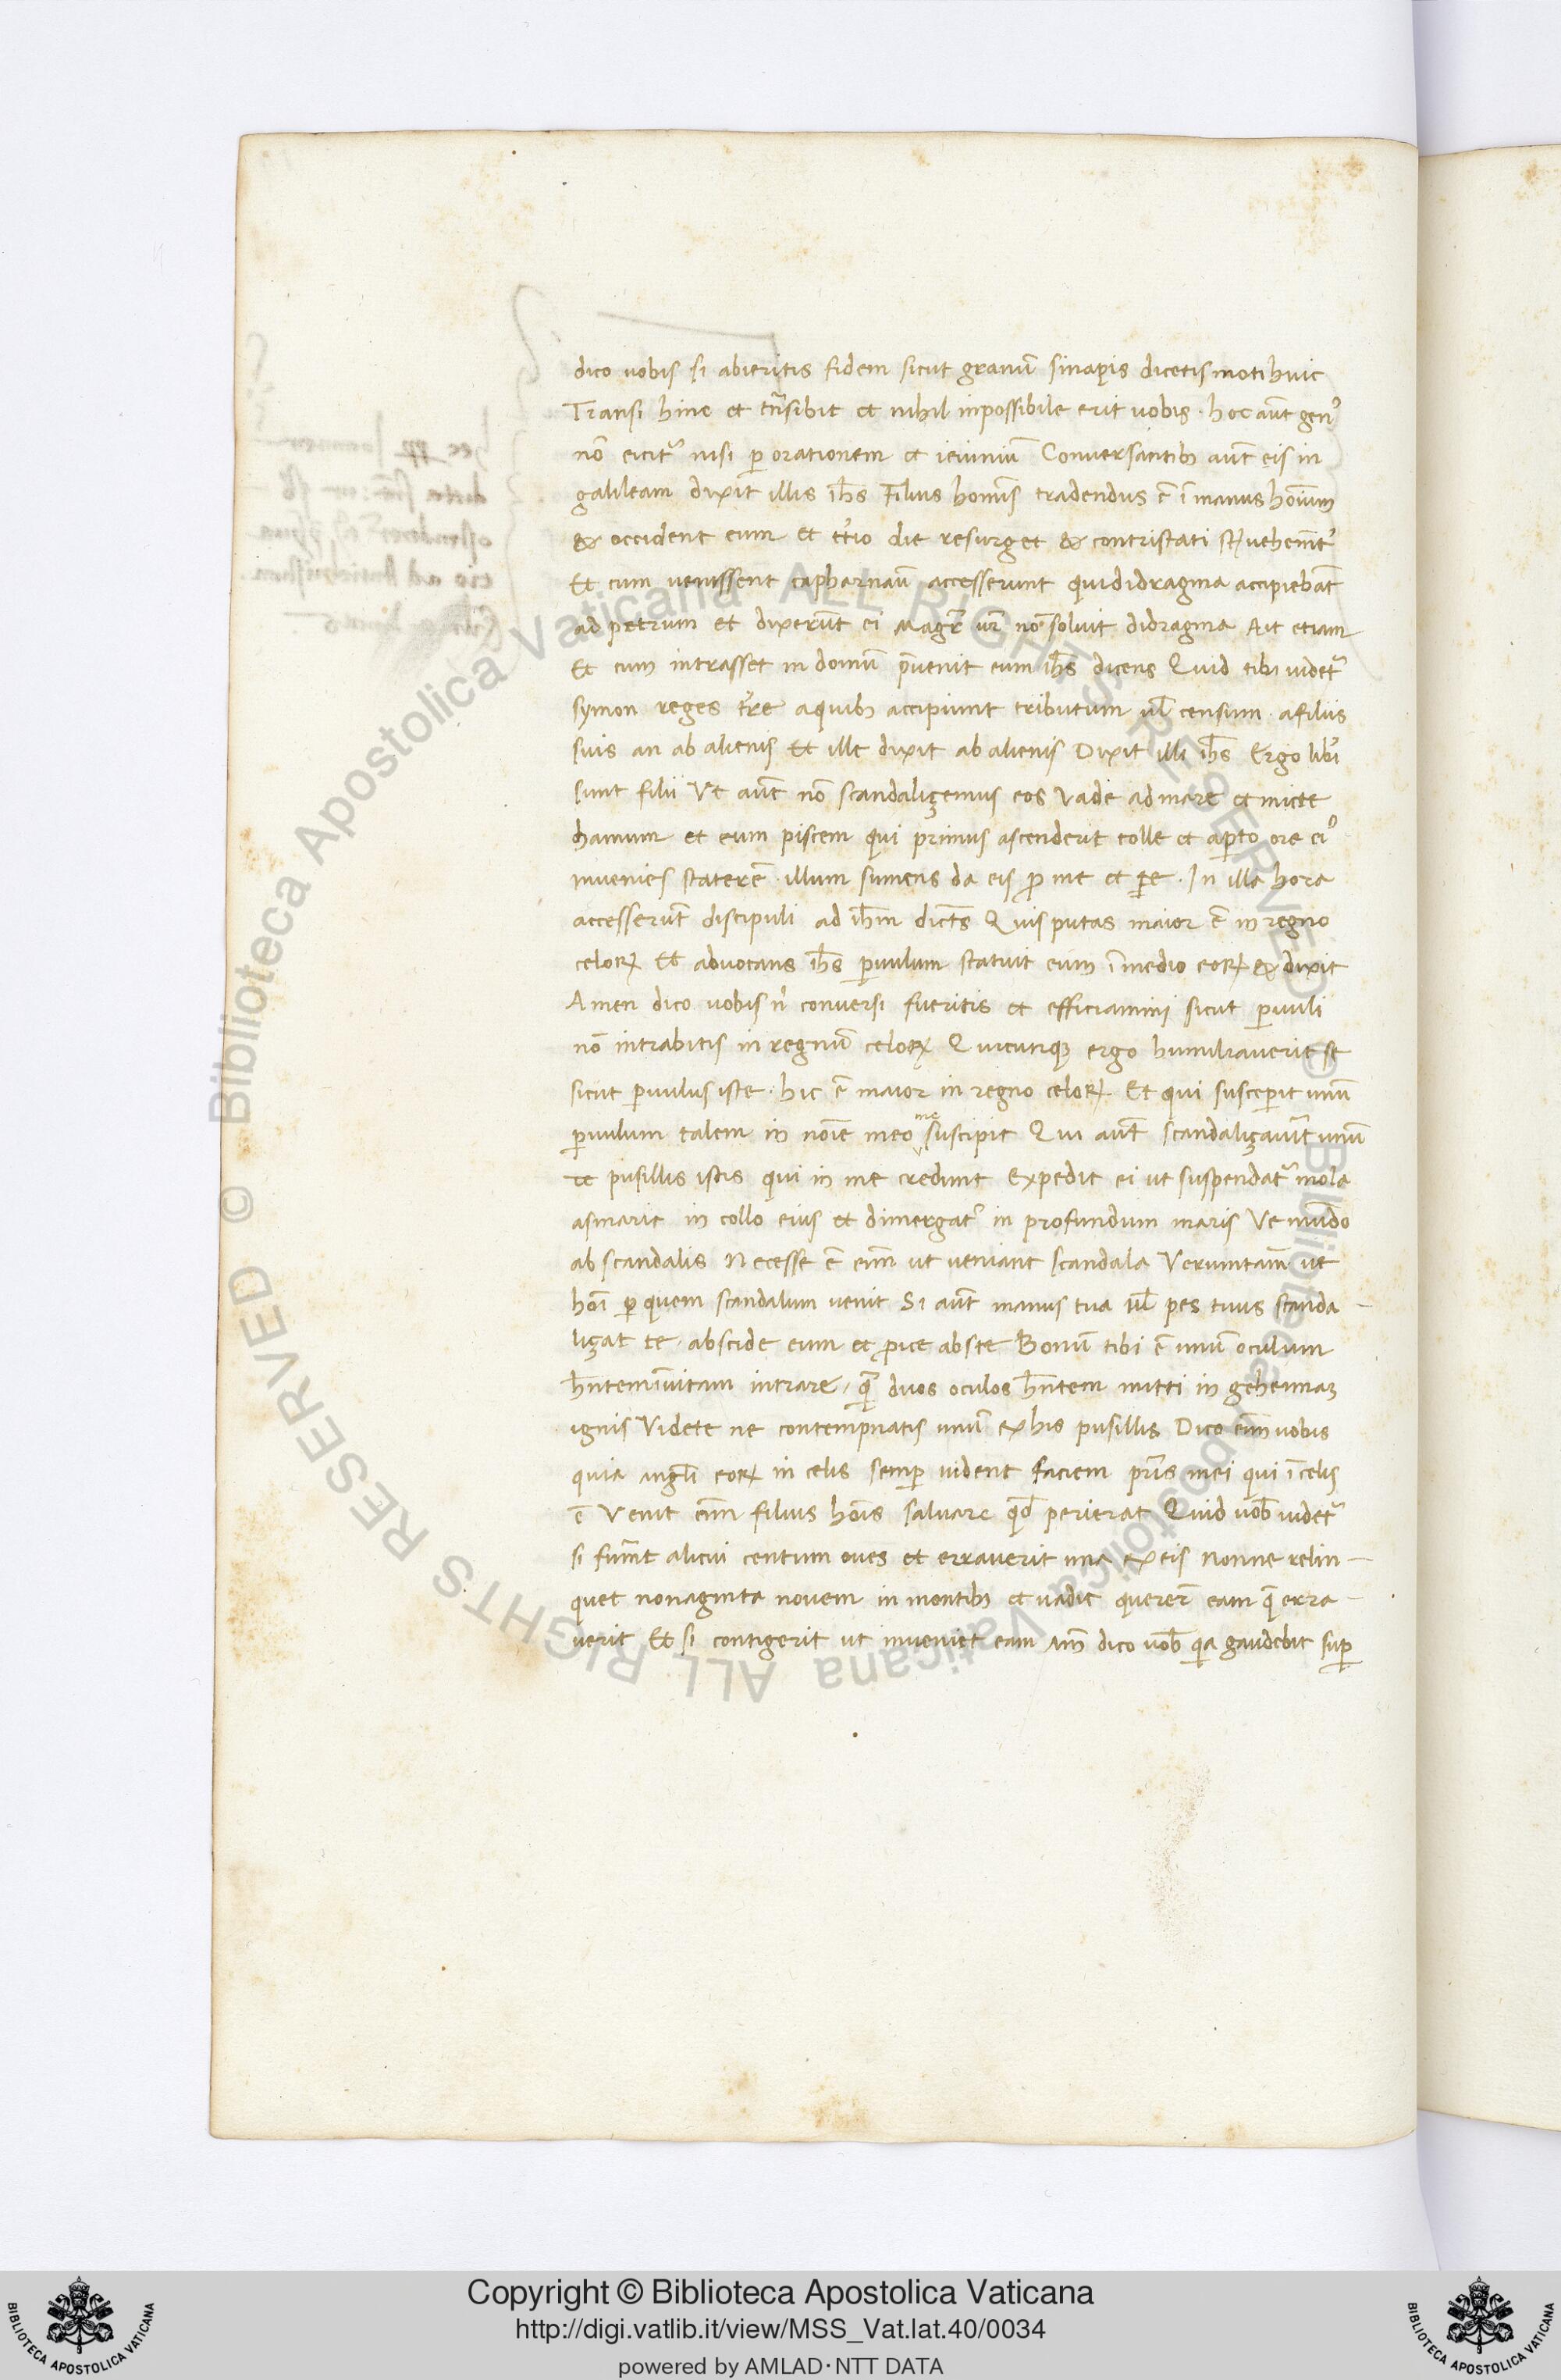 dico uobis si abieritis fidem sicut granū sinapis dicetis moti huic
Transi hinc et trāsibit et nihil inpossibile erit uobis · hoc aūt genꝰ
nō eicitᷣ nisi ꝑ orationem et ieiuniū Conuersātibꝫ aūt eis in
galileam dixit illis ih̄s Filius hominis tradendus ē ī manus hoīum
& occident eum et tr̄tio die resurget & contristati sꝫt uehemētᷣ
Et cum uenissent capharnaū accesserunt qui didragma accipiebāt
ad petrum et dixerūt ei Magr̄ ur̄ nō soluit didragma Ait etiam
Et cum intrasset in domū p̄uenit eum ih̄s dicens Quid tibi uidetᷣ
symon reges tr̄re a quibꝫ accipiunt tributum ul̄ censum · a filiis
suis an ab alienis Et ille dixit ab alienis Dixit illi ih̄s Ergo lib̄i
sunt filii Vt aūt nō scandalizemus eos vade ad mare et micte
hamum et eum piscem qui primus ascenderit tolle et aꝑto ore eiꝰ
inuenies staterē · illum sumens da eis ꝓ me et te · In illa hora
accesserūt discipuli ad ih̄m dicētes Quis putas maior ē in regno
celoꝝ Et aduocans ih̄s ꝑuulum statuit eum ī medio eoꝝ & dixit
Amen dico uobis nͥ conuersi fueritis et efficiamini sicut ꝑuuli
nō intrabitis in regnū celoꝝ Quicunqꝫ ergo humiliauerit se
sicut ꝑuulus iste · hic ē maior in regno celoꝝ Et qui susceꝑit unū
ꝑuulum talem in noīe meo me suscipit Qui aūt scandalizauīt unū
de pusillis istis qui in me credunt expedit ei ut suspendatᷣ mola
asinaria in collo eius et dimergatᷣ in profundum maris Ve mūdo
ab scandalis Necesse ē enī ut ueniant scandala Verumtam̄ ue
hoī ꝑ quem scandalum uenit Si aūt manus tua ul̄ pes tuus scanda-
lizat te · abscide eum et ꝓice abs te Bonū tibi ē unū oculum
hn̄tem ī uitam intrare / qͣ duos oculos hn̄tem mitti in gehennaꝫ
ignis Videte ne contempnatis unū ex his pusillis Dico enī uobis
quia angl̄i eoꝝ in celis semꝑ uident faciem pr̄is mei qui ī celis
ē Venit enī filius hoīs saluare qd̄ perierat Quid uob̄ uidetᷣ
si fuerīt alicui centum oues et errauerit una ex eis Nonne relin-
quet nonaginta nouem in montibꝫ et uadit querer̄ eam qͣ erra-
uerit Et si contigerit ut inueniet eam Am̄ dico uob̄ qͥa gaudebit suꝑ
Copyright © Biblioteca Apostolica Vaticana
http://digi.vatlib.it/view/MSS_Vat.lat.40/0034
powered by AMLAD·NTT DATA
BIBLIOTECA APOSTOLICA VATICANA
BIBLIOTECA APOSTOLICA VATICANA
© Biblioteca Apostolica Vaticana ALL RIGHTS RESERVED © Biblioteca Apostolica Vaticana ALL RIGHTS RESERVED